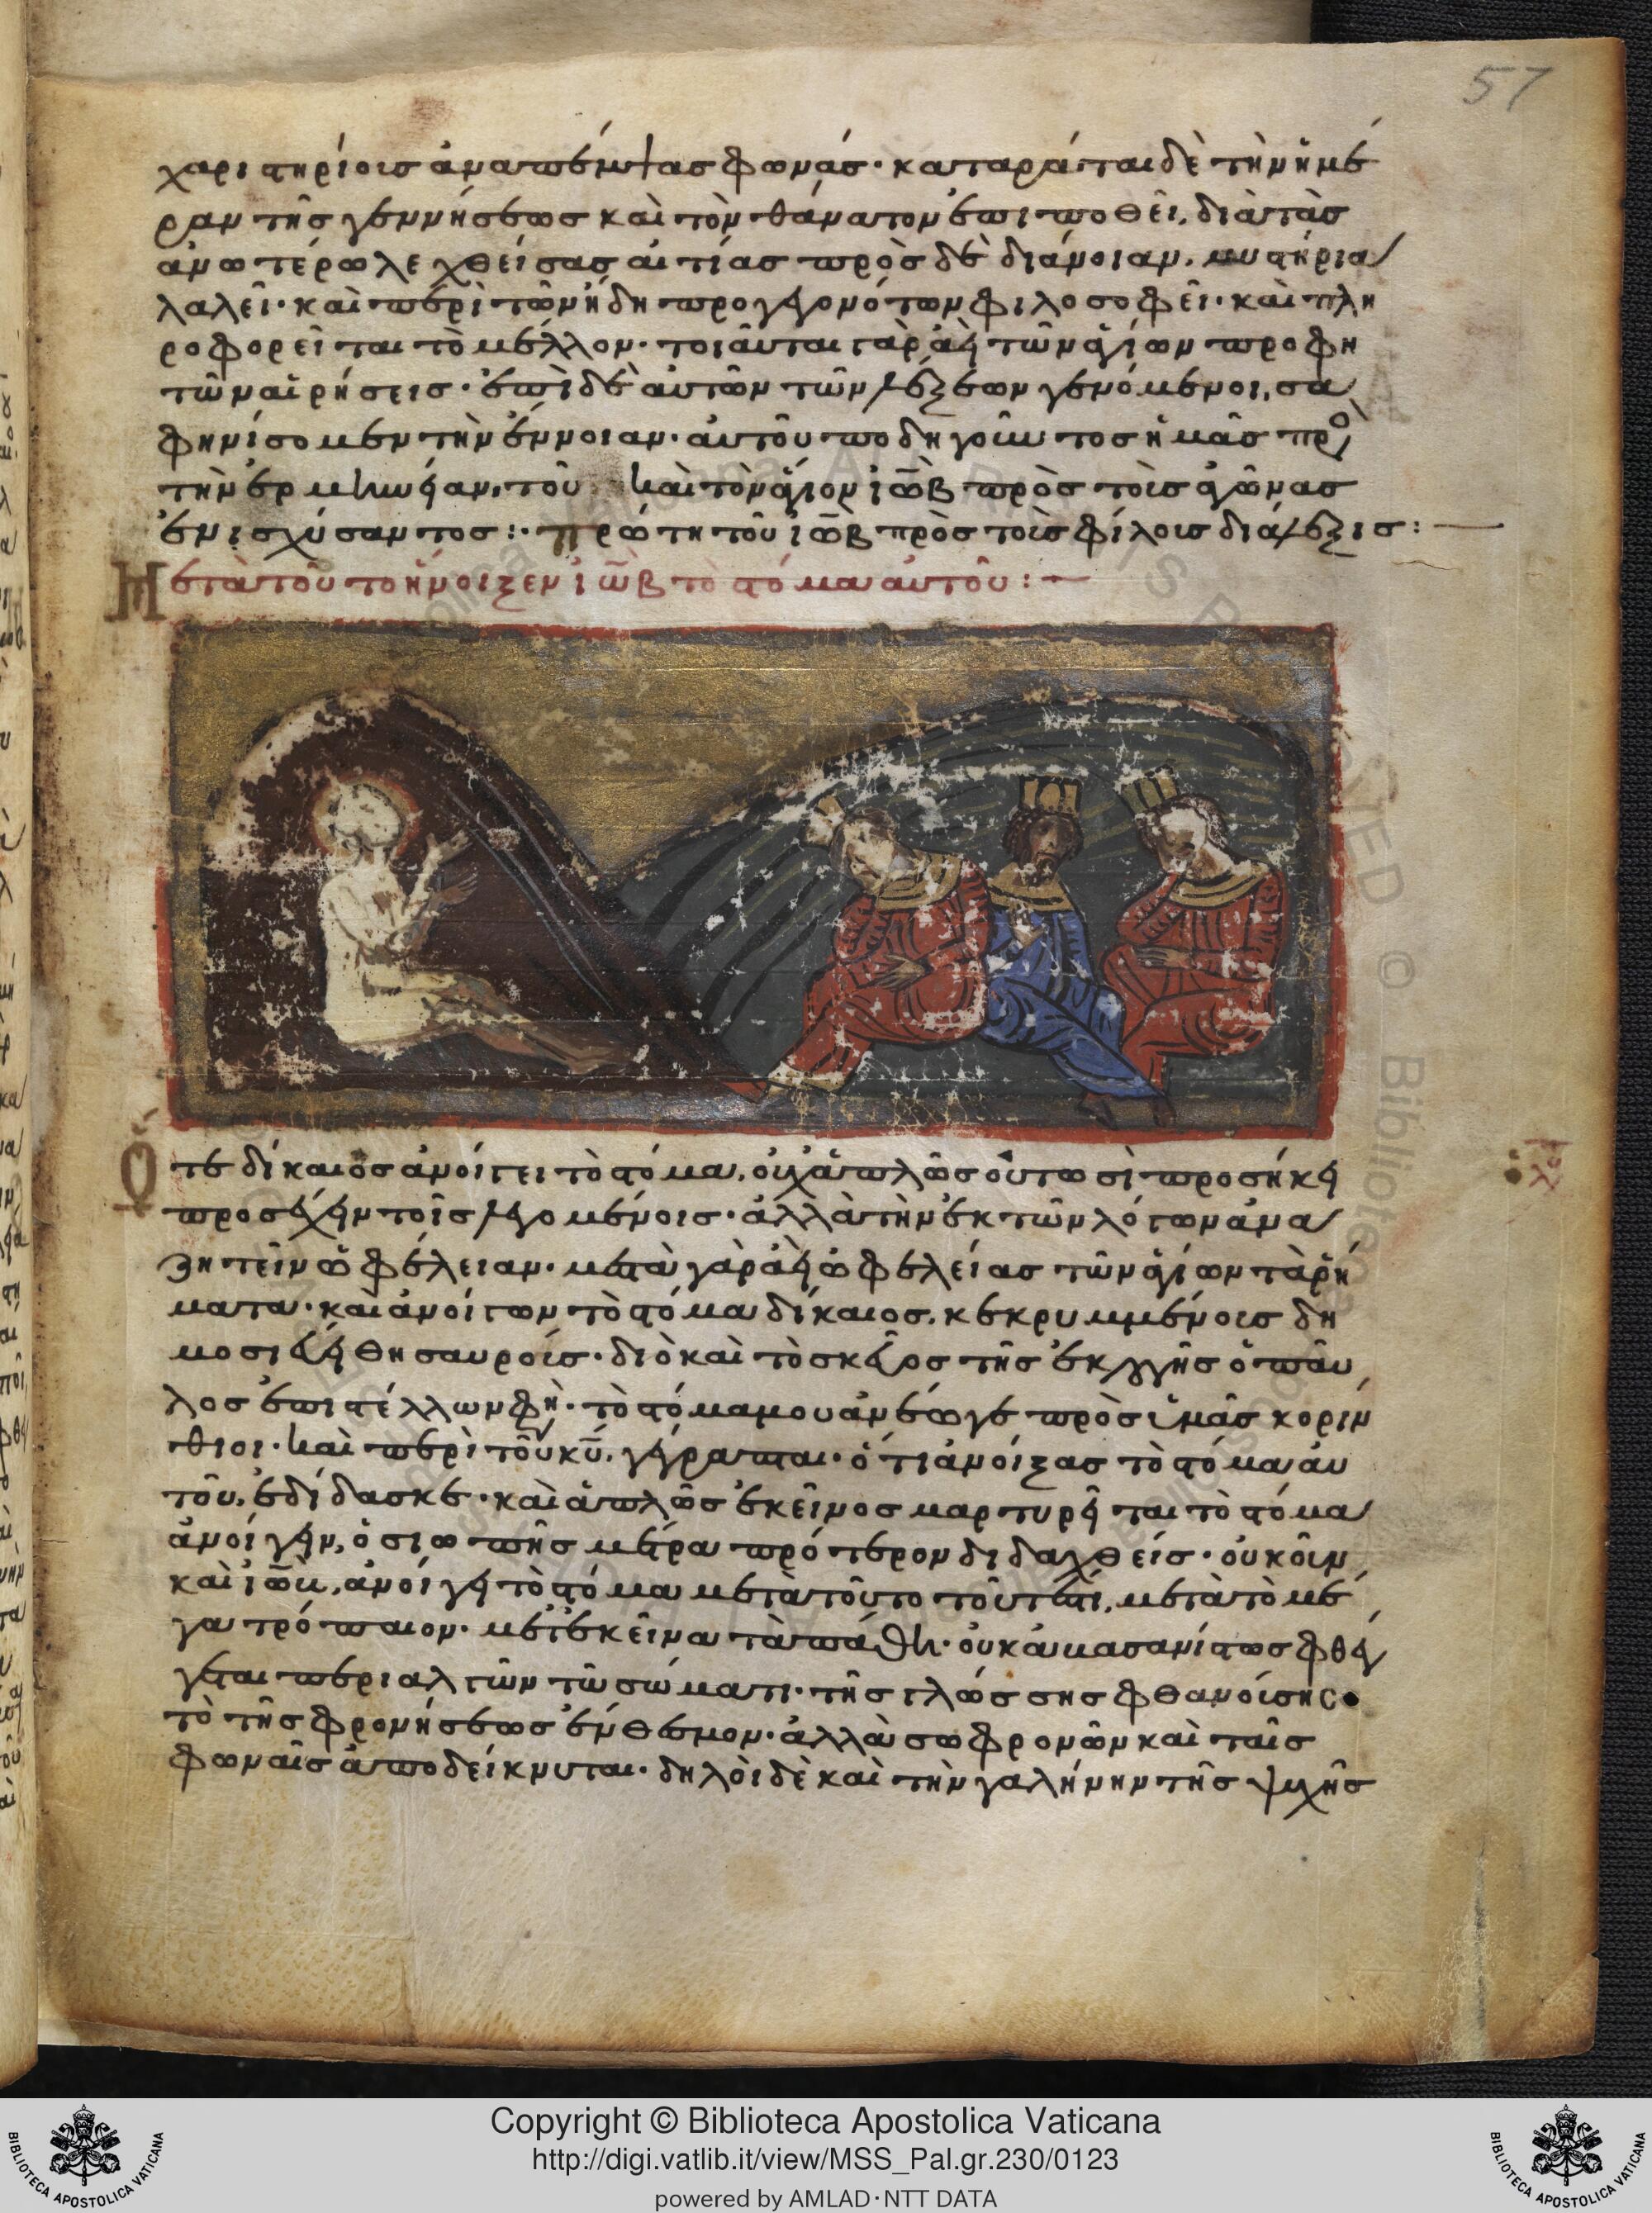 57
χαριστηρίοις ἀναπέμψας φωνάς· καταράται δὲ τὴν ἡμέ
ραν τῆς γεννήσεως καὶ τὸν θάνατον ἐπιποθεῖ, διὰ τὰς
ἀνωτέρω λεχθείσας αἰτίας πρὸς δὲ διάνοιαν, μυστήρια
λαλεῖ· καὶ περὶ τῶν ἤδη προγεγονότων φιλοσοφεῖ· καὶ πλη
ροφορεῖται τὸ μέλλον· τοιαῦται γὰρ ἀεὶ τῶν ἁγίων προφη
τῶν αἱ ρήσεις· ἐπὶ δὲ αὐτῶν τῶν λέξεων γενόμενοι, σα
φηνίσομεν τὴν ἔννοιαν· αὐτοῦ ποδηγοῦντος ἡμᾶς πρὸ
τὴν ἑρμηνείαν, τοῦ καὶ τὸν ἅγιον ἰὼβ πρὸς τοὺς ἀγῶνας
ἐνισχύσαντος:· πρώτη τοῦ ἰὼβ πρὸς τοὺς φίλους διάλεξις:
Μετὰ τοῦτο ἤνοιξεν ἰὼβ τὸ στόμα αὐτοῦ:
Ὅτε δίκαιος ἀνοίγει τὸ στόμα, οὐχ ἁπλῶς οὑτωσὶ προσήκει
προσέχειν τοῖς λεγομένοις· ἀλλὰ τὴν ἐκ τῶν λόγων ἀνα
ζητεῖν ὠφέλειαν· μετὰ γὰρ ἀεὶ ὠφελείας τῶν ἁγίων τὰ ῥή
ματα· καὶ ἀνοίγων τὸ στόμα δίκαιος, κεκρυμμένους δη
μοσιεύει θησαυρούς· διὸ καὶ τὸ σκεῦος τῆς ἐκλογῆς ὁ παῦ
λος ἐπιστέλλων φη· τὸ στόμα μου ἀνέωγε πρὸς ὑμᾶς κοριν
θιοι· καὶ περὶ τοῦ κυ, γέγραπται· ὅτι ἀνοίξας τὸ στόμα αὐ
τοῦ, ἐδίδασκε· καὶ ἁπλῶς ἐκεῖνος μαρτυρεῖται τὸ στόμα
ἀνοίγειν, ὁ σιωπῆς μέτρα πρότερον διδαχθείς· οὐκοῦν
καὶ ἰὼβ, ἀνοίγει τὸ στόμα μετὰ τοῦτο τουτέστι, μετὰ τὸ μέ
γα τρόπαιον· μετ ἐκεῖνα τὰ πάθη· οὐκ ἀβασανίστως φθέγ
γεται περιαλγῶν τῷ σώματι· τῆς γλώσσης φθανούσης
τὸ τῆς φρονήσεως ἔνθεσμον· ἀλλὰ σωφρονῶν καὶ ταῖς
φωναῖς ἀποδείκνυται· δηλοῖ δὲ καὶ τὴν γαλήνην τῆς ψυχῆς
Copyright © Biblioteca Apostolica Vaticana
http://digi.vatlib.it/view/MSS_Pal.gr.230/0123
powered by AMLAD·NTT DATA
BIBLIOTECA APOSTOLICA VATICANA
BIBLIOTECA APOSTOLICA VATICANA